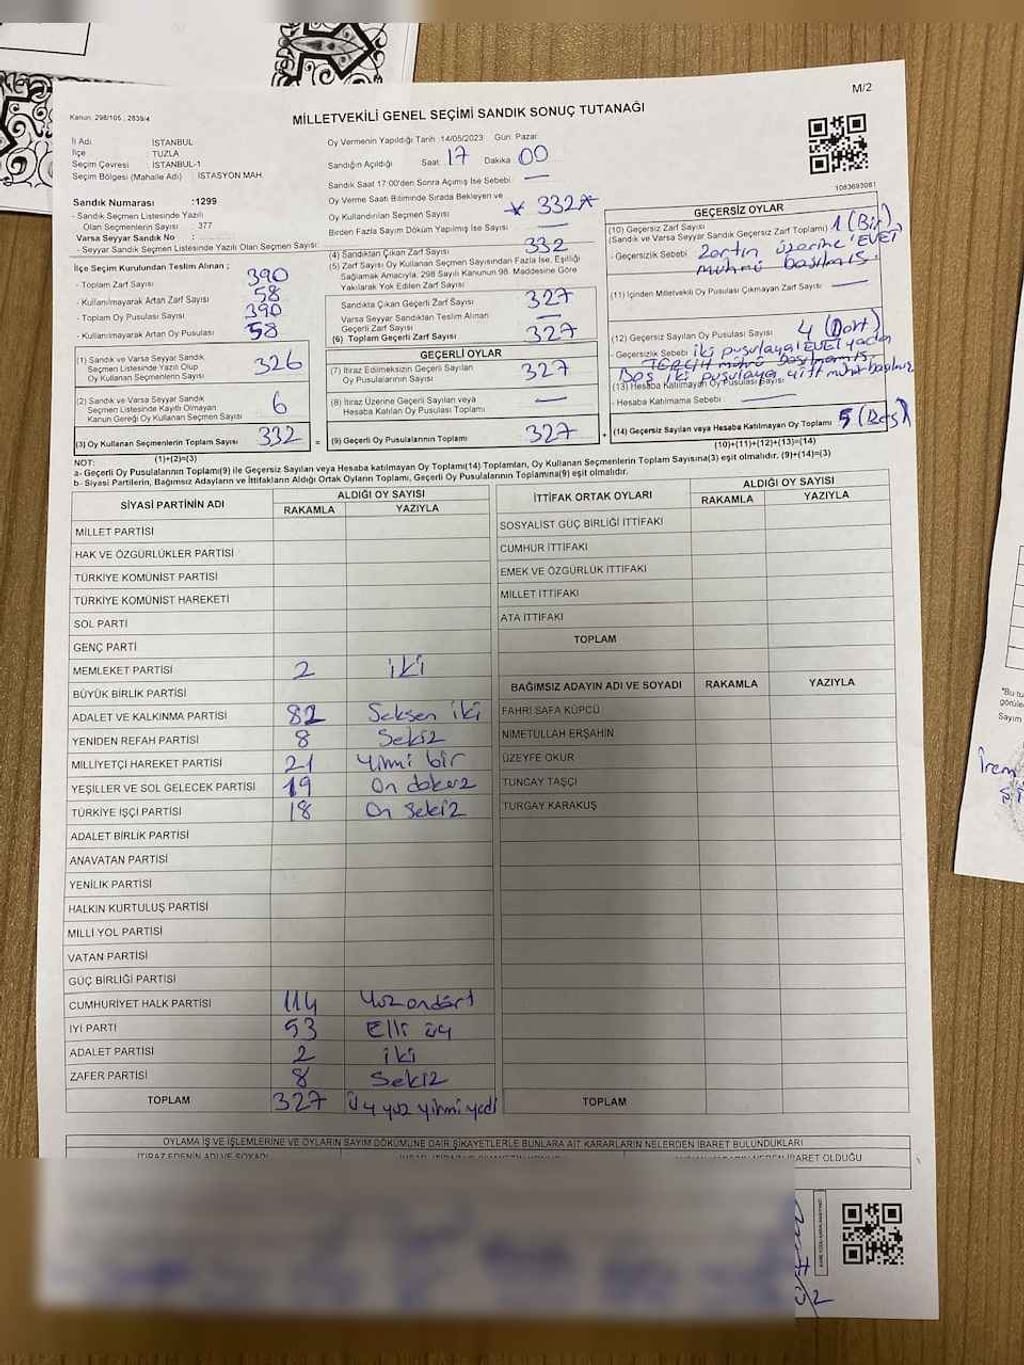 M/2
Kanun: 298/105 ; 2839/4
MİLLETVEKİLİ GENEL SEÇİMİ SANDIK SONUÇ TUTANAĞI
İl Adı : İSTANBUL
İlçe : TUZLA
Seçim Çevresi : İSTANBUL-1
Seçim Bölgesi (Mahalle Adı) : İSTASYON MAH.
Sandık Numarası :1299
- Sandık Seçmen Listesinde Yazılı
Olan Seçmenlerin Sayısı : 377
Varsa Seyyar Sandık No :
- Seyyar Sandık Seçmen Listesinde Yazılı Olan Seçmen Sayısı:
Oy Vermenin Yapıldığı Tarih :14/05/2023 Gün: Pazar
Sandığın Açıldığı Saat: 17 Dakika: 00
Sandık Saat 17:00'den Sonra Açılmış İse Sebebi: —
Oy Verme Saati Bitiminde Sırada Bekleyen ve
Oy Kullandırılan Seçmen Sayısı 332
Birden Fazla Sayım Döküm Yapılmış İse Sayısı : —
1083693081
İlçe Seçim Kurulundan Teslim Alınan ;
- Toplam Zarf Sayısı 390
- Kullanılmayarak Artan Zarf Sayısı 58
- Toplam Oy Pusulası Sayısı 390
- Kullanılmayarak Artan Oy Pusulası 58
(1) Sandık ve Varsa Seyyar Sandık
Seçmen Listesinde Yazılı Olup
Oy Kullanan Seçmenlerin Sayısı 326
(2) Sandık ve Varsa Seyyar Sandık
Seçmen Listesinde Kayıtlı Olmayan
Kanun Gereği Oy Kullanan Seçmen Sayısı 6
(3) Oy Kullanan Seçmenlerin Toplam Sayısı 332 =
(1)+(2)=(3)
(4) Sandıktan Çıkan Zarf Sayısı 332
(5) Zarf Sayısı Oy Kullanan Seçmen Sayısından Fazla İse, Eşitliği
Sağlamak Amacıyla, 298 Sayılı Kanunun 98. Maddesine Göre
Yakılarak Yok Edilen Zarf Sayısı
Sandıkta Çıkan Geçerli Zarf Sayısı 327
Varsa Seyyar Sandıktan Teslim Alınan
Geçerli Zarf Sayısı —
(6) Toplam Geçerli Zarf Sayısı 327
GEÇERLİ OYLAR
(7) İtiraz Edilmeksizin Geçerli Sayılan
Oy Pusulalarının Sayısı 327
(8) İtiraz Üzerine Geçerli Sayılan veya
Hesaba Katılan Oy Pusulası Toplamı —
(9) Geçerli Oy Pusulalarının Toplamı 327 +
GEÇERSİZ OYLAR
(10) Geçersiz Zarf Sayısı
(Sandık ve Varsa Seyyar Sandık Geçersiz Zarf Toplamı) 1 (Bir)
- Geçersizlik Sebebi : Zarfın üzerine 'EVET
mührü basılmış.
(11) İçinden Milletvekili Oy Pusulası Çıkmayan Zarf Sayısı : —
(12) Geçersiz Sayılan Oy Pusulası Sayısı 4 (Dört)
- Geçersizlik Sebebi : iki pusulaya EVET yada
TERCİH mührü basılmamış.
(13) Hesaba Katılmayan Oy Pusulası Sayısı
- Hesaba Katılmama Sebebi : —
(14) Geçersiz Sayılan veya Hesaba Katılmayan Oy Toplamı 5 (Beş)
(10)+(11)+(12)+(13)=(14)
NOT:
a- Geçerli Oy Pusulalarının Toplamı(9) ile Geçersiz Sayılan veya Hesaba katılmayan Oy Toplamı(14) Toplamları, Oy Kullanan Seçmenlerin Toplam Sayısına(3) eşit olmalıdır. (9)+(14)=(3)
b- Siyasi Partilerin, Bağımsız Adayların ve İttifakların Aldığı Ortak Oyların Toplamı, Geçerli Oy Pusulalarının Toplamına(9) eşit olmalıdır.
SİYASİ PARTİNİN ADI ALDIĞI OY SAYISI
RAKAMLA YAZIYLA
MİLLET PARTİSİ
HAK VE ÖZGÜRLÜKLER PARTİSİ
TÜRKİYE KOMÜNİST PARTİSİ
TÜRKİYE KOMÜNİST HAREKETİ
SOL PARTİ
GENÇ PARTİ
MEMLEKET PARTİSİ 2 iki
BÜYÜK BİRLİK PARTİSİ
ADALET VE KALKINMA PARTİSİ 82 Seksen iki
YENİDEN REFAH PARTİSİ 8 Sekiz
MİLLİYETÇİ HAREKET PARTİSİ 21 yirmi bir
YEŞİLLER VE SOL GELECEK PARTİSİ 19 On dokuz
TÜRKİYE İŞÇİ PARTİSİ 18 On sekiz
ADALET BİRLİK PARTİSİ
ANAVATAN PARTİSİ
YENİLİK PARTİSİ
HALKIN KURTULUŞ PARTİSİ
MİLLİ YOL PARTİSİ
VATAN PARTİSİ
GÜÇ BİRLİĞİ PARTİSİ
CUMHURİYET HALK PARTİSİ 114 Yüz ondört
İYİ PARTİ 53 Elli üç
ADALET PARTİSİ 2 iki
ZAFER PARTİSİ 8 Sekiz
TOPLAM 327 Üç yüz yirmi yedi
İTTİFAK ORTAK OYLARI ALDIĞI OY SAYISI
RAKAMLA YAZIYLA
SOSYALİST GÜÇ BİRLİĞİ İTTİFAKI
CUMHUR İTTİFAKI
EMEK VE ÖZGÜRLÜK İTTİFAKI
MİLLET İTTİFAKI
ATA İTTİFAKI
TOPLAM
BAĞIMSIZ ADAYIN ADI VE SOYADI RAKAMLA YAZIYLA
FAHRİ SAFA KÜPCÜ
NİMETULLAH ERŞAHİN
ÜZEYFE OKUR
TUNCAY TAŞÇI
TURGAY KARAKUŞ
TOPLAM
OYLAMA İŞ VE İŞLEMLERİNE VE OYLARIN SAYIM DÖKÜMÜNE DAİR ŞİKAYETLERLE BUNLARA AİT KARARLARIN NELERDEN İBARET BULUNDUKLARI
İTİRAZ EDENİN ADI VE SOYADI
İBARET OLDUĞU
"Bu tu
görüle
Sayım
İrem